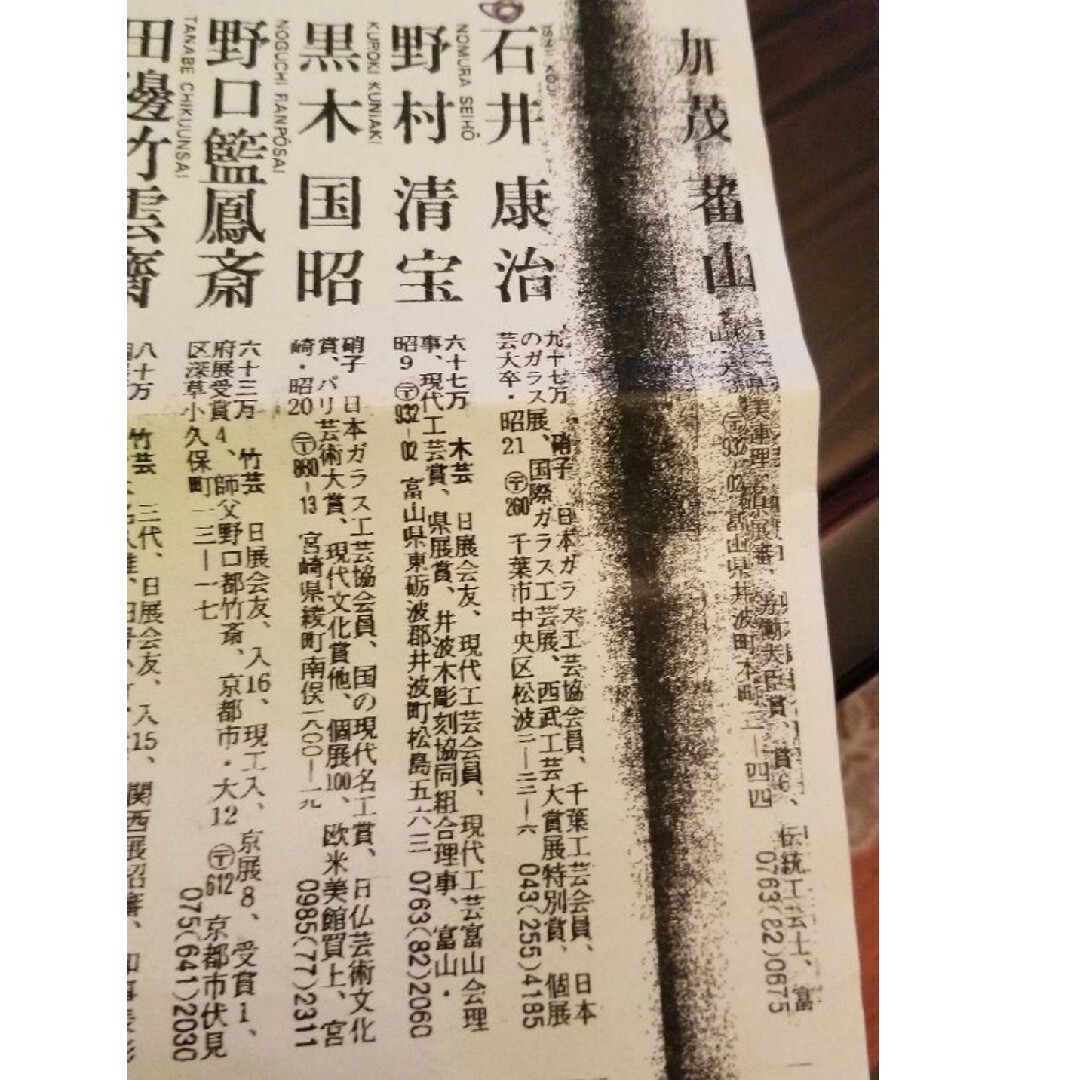 加茂蕃山
山・大
〒932-02 富山県井波町本町三ー四四
県美連理、県展審、労働大臣賞、賞6、伝統工芸士、富
0763(82)0675
ISHII KOJI
石井康治
九十七万 硝子 日本ガラス工芸協会員、千葉工芸会員、日本
のガラス展、国際ガラス工芸展、西武工芸大賞展特別賞、個展
芸大卒・昭21 〒260 千葉市中央区松波二ー二二ー六 043(255)4185
NOMURA SEIHŌ
野村清宝
六十七万 木芸 日展会友、現代工芸会員、現代工芸富山会理
事、現代工芸賞、県展賞、井波木彫刻協同組合理事、富山・
昭9 〒932-02 富山県東砺波郡井波町松島五六三 0763(82)2060
KUROKI KUNIAKI
黒木国昭
硝子 日本ガラス工芸協会員、国の現代名工賞、日仏芸術文化
賞、パリ芸術大賞、現代文化賞他、個展100、欧米美館買上、宮
崎・昭20 〒880-13 宮崎県綾町南俣一八〇〇ー一九 0985(77)2311
NOGUCHI RANPŌSAI
野口籃鳳斎
六十三万 竹芸 日展会友、入16、現工入、京展8、受賞1、
府展受賞4、師父野口都竹斎、京都市・大12 〒612 京都市伏見
区深草小久保町一三ー一七 075(641)2030
TANABE CHIKUUNSAI
田邊竹雲齋
八十万 竹芸 三代、日展会友、入15、関西展招審、